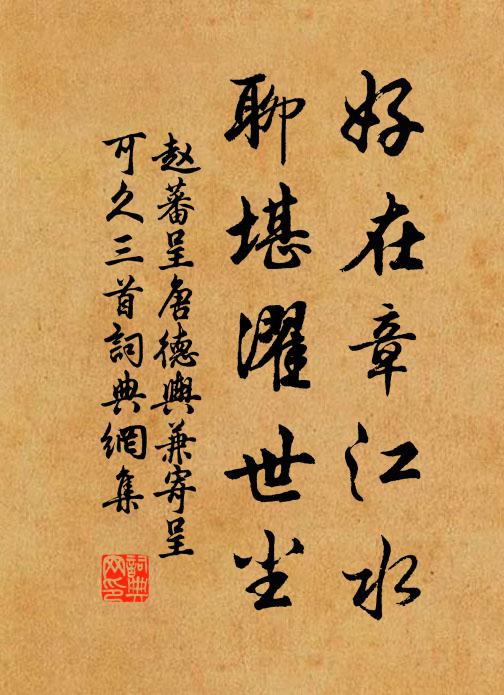 好在章江水
聊堪濯世尘
赵蕃呈唐德輿兼寄呈
可久三首詞典網集
詞典网印